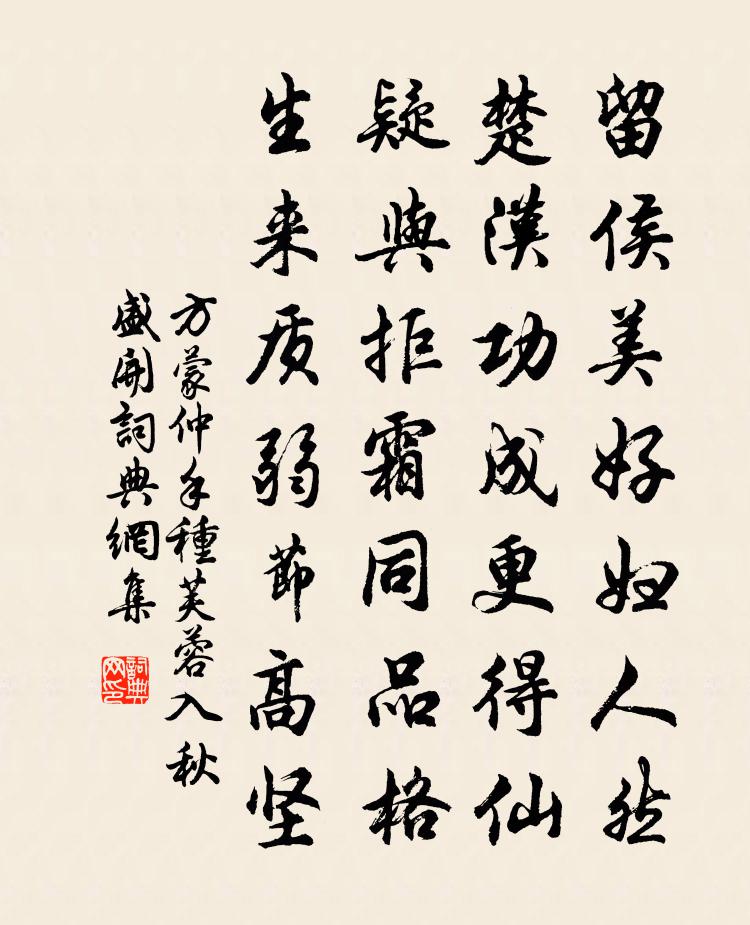 留侯美好妇人然
楚漢功成更得仙
疑與拒霜同品格
生来质弱節高坚
方蒙仲手種芙蓉入秋
盛開詞典網集
詞典网印